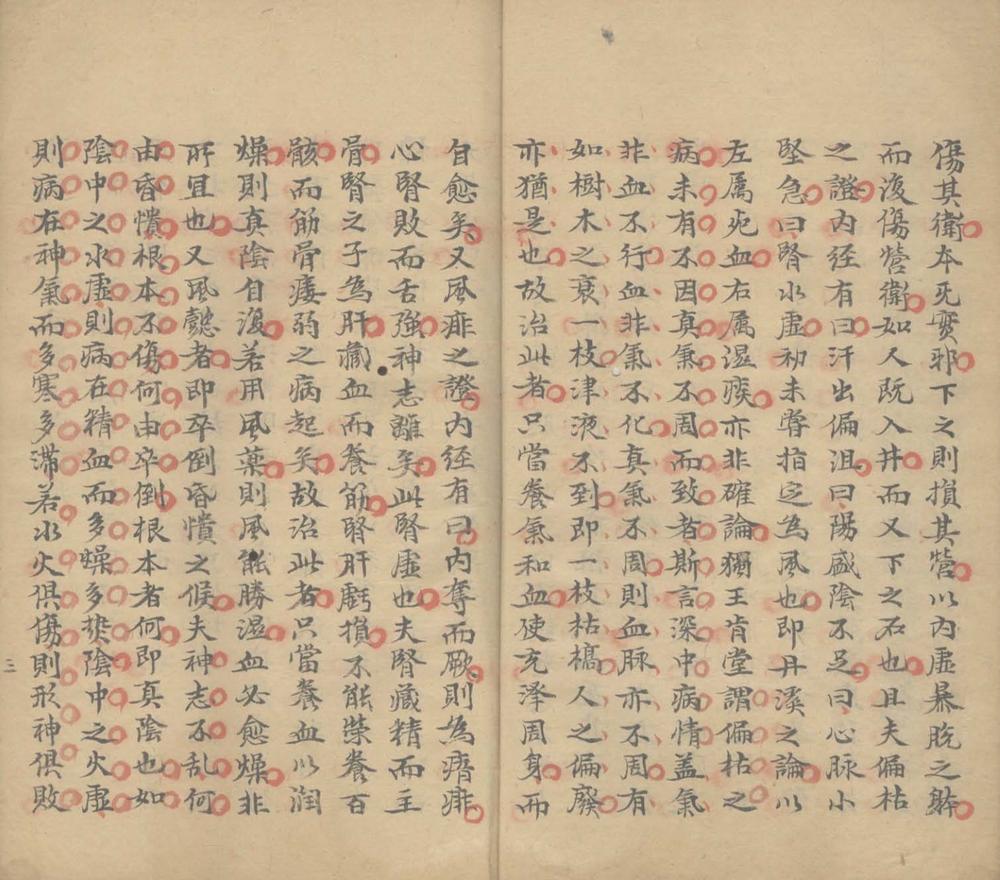 傷其衛本死實邪下之則損其營以內虛暴脫之軀
而復傷營衛如人既入井而又下之石也且夫偏枯
之證內经有曰汗出偏沮曰陽盛陰不足曰心脉小
堅急曰腎水虛初未嘗指定為風也即丹溪之論以
左属死血右属湿痰亦非確論獨王肯堂謂偏枯之
病未有不因真氣不周而致者斯言深中病情盖氣
非血不行血非氣不化真氣不周則血脉亦不周有
如樹木之衰一枝津液不到即一枝枯槁人之偏廢
亦猶是也故治此者只當養氣和血使充澤周身而
自愈矣又風痱之證內经有曰內奪而厥則為瘖痱
心腎敗而舌強神志離矣此腎虛也夫腎藏精而主
骨腎之子為肝藏血而養筋腎肝虧損不能荣養百
骸而筋骨痿弱之病起矣故治此者只當養血以潤
燥則真陰自復若用風藥則風能勝湿血必愈燥非
所宜也又風懿者即卒倒昏憒之候夫神志不乱何
由昏憒根本不傷何由卒倒根本者何即真陰也如
陰中之水虛則病在精血而多燥多熱陰中之火虛
則病在神氣而多寒多滞若水火俱傷則形神俱敗
三